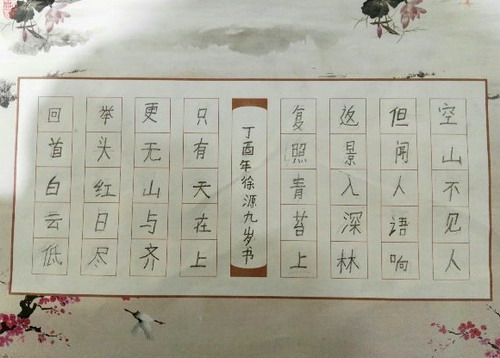 空山不见人
但闻人语响
返景入深林
复照青苔上
丁酉年徐源九岁书
只有天在上
更无山与齐
举头红日尽
回首白云低